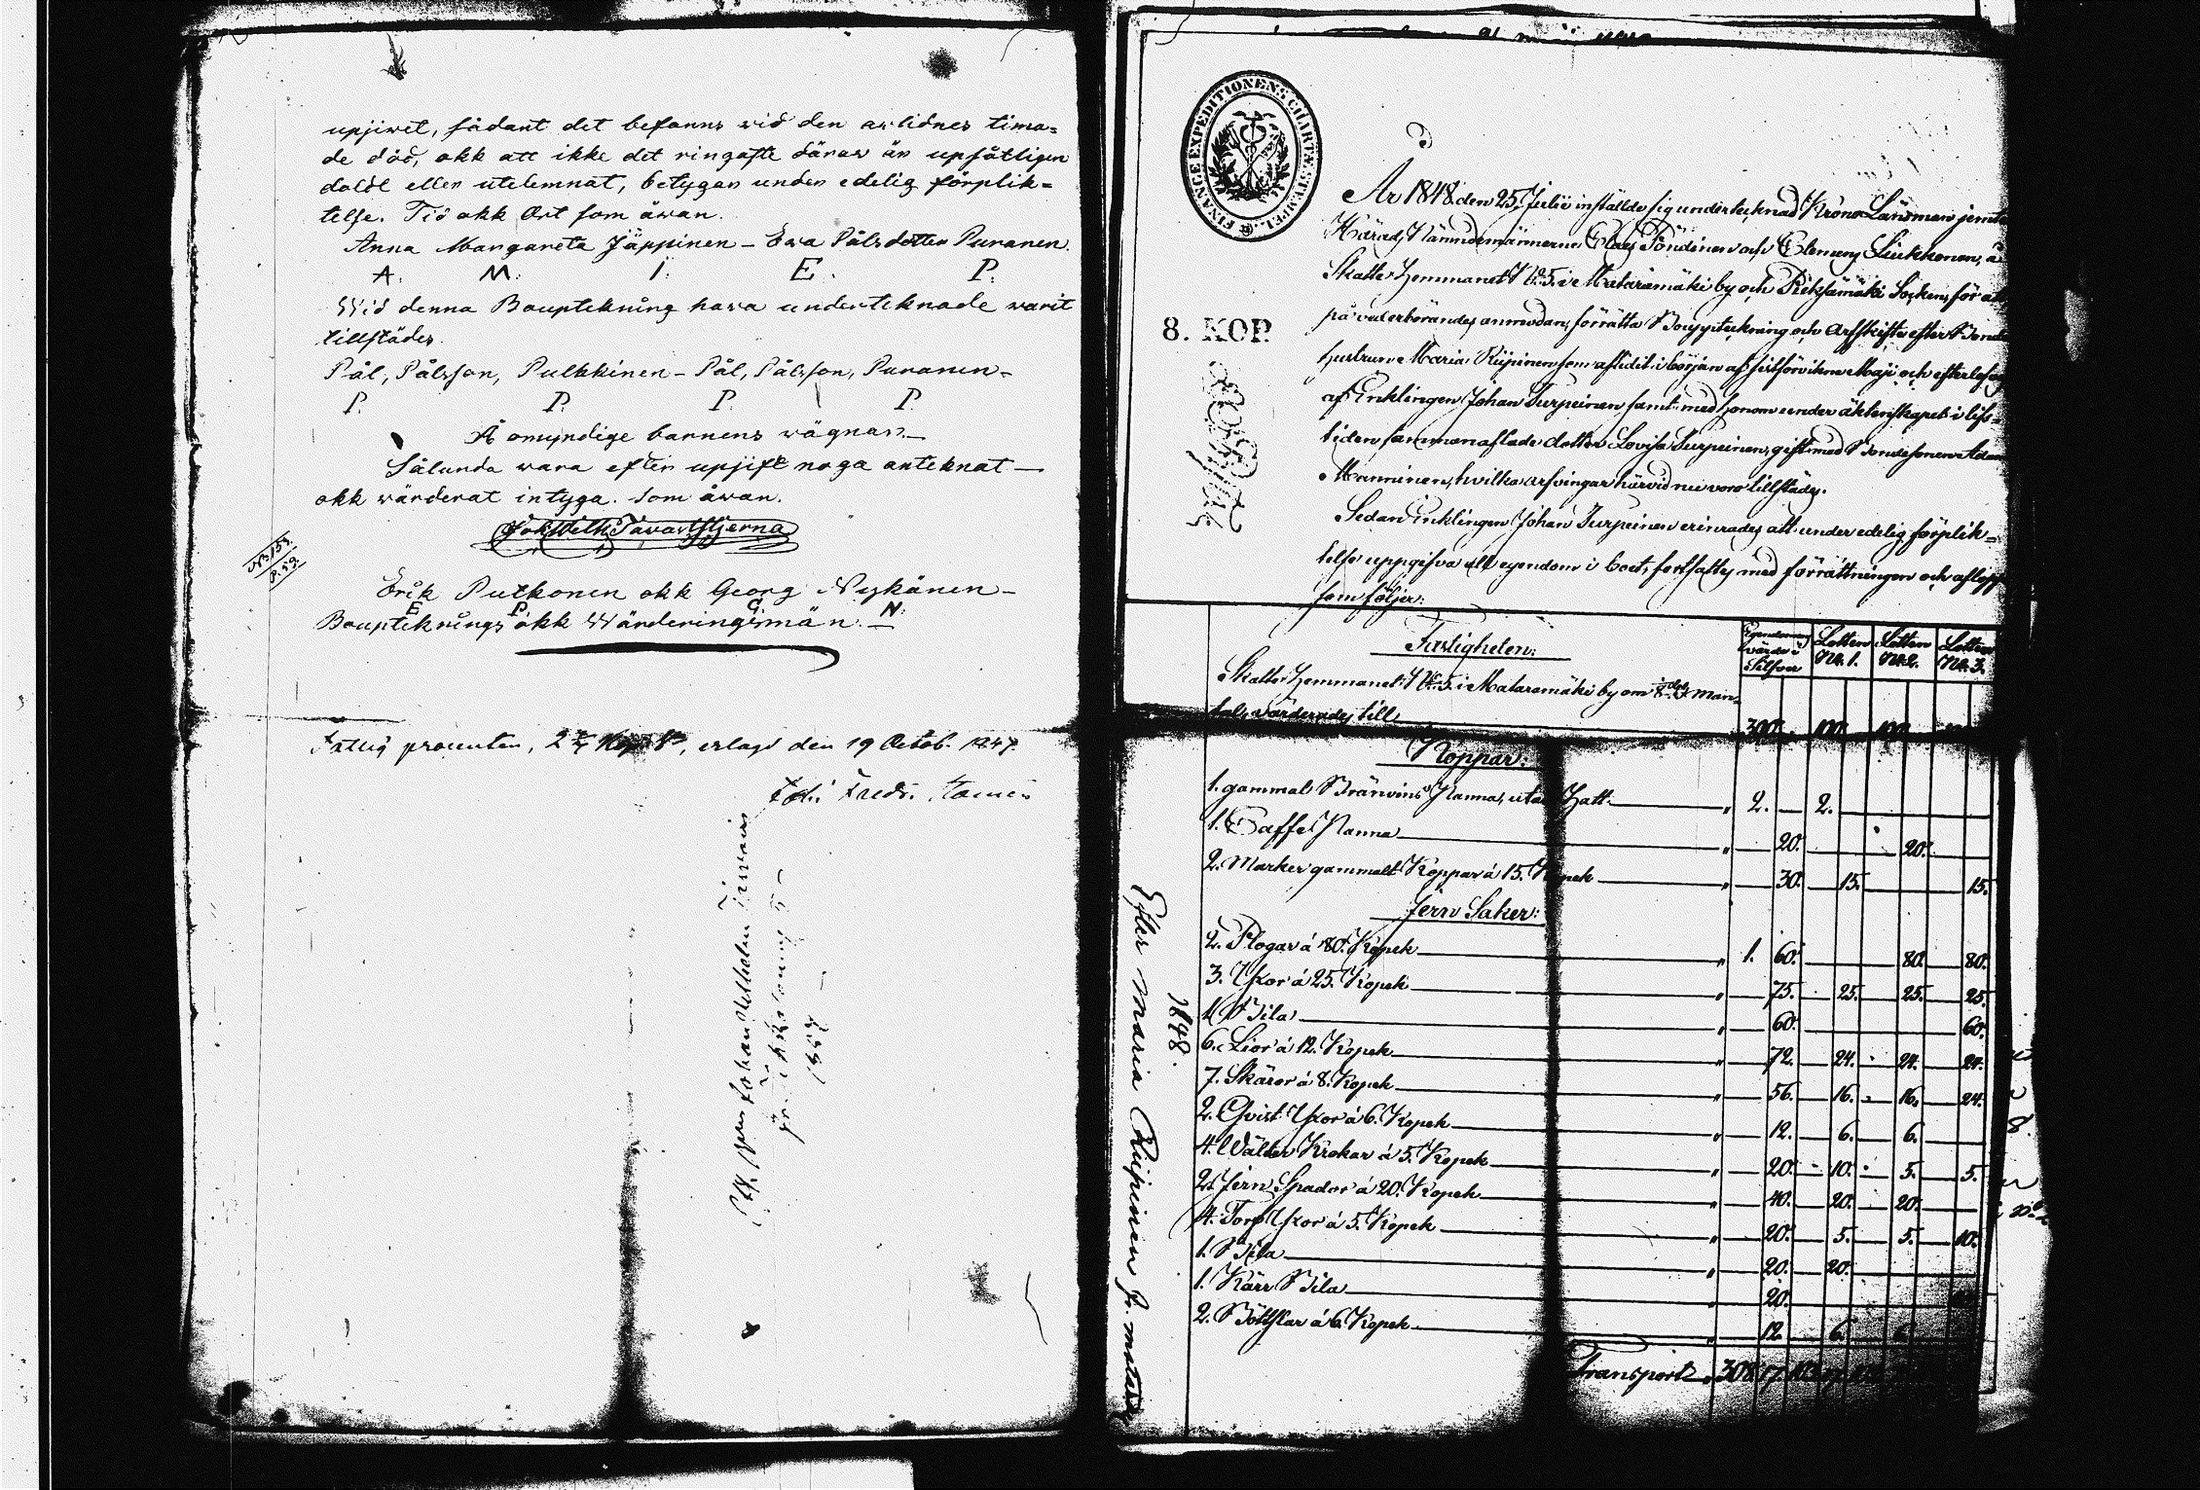 upjivet, sådant det befanns vid den avlidnes tima=
de död, okk att ikke det ringaste därav är upsåtligen
doldt eller utelemnat, betygar under edelig förplik=
telse. Tid okk Ort som åvan.
Anna Margareta Jäppinen – Eva Pålsdotter Puranen.
A. M. J. E. P.
Wid denna Bouptekning hava underteknade varit
tillstädes.
Pål, Pålsson, Pulkkinen – Pål, Pålsson, Puranen –
P. P. P. P.
Å omyndige barnens vägnar. —
Sålunda vara efter upjift noga anteknat —
okk värderat intyga. Som åvan.
Joh Wilh Tavaststjerna
N 153.
P. 53.
Erik Putkonen okk Georg Nykänen –
E P. G. N.
Bouptekning okk Wärderingsmän. —
Fattig procenten, erlagd den 19 Octob. 1847.
Fredr.
1857
FINANCE EXPEDITIONENS CHARTÆ STEMPEL.
8. KOP.
År 1848 den 25 Julii inställde sig undertecknad Krono Länsman jemte
Härads Nämndemännerne Claes Pöndinen och Clemens Liukkonen, å
Skatte Hemmanet No 5. i Mataramäki by och Pieksämäki Socken, för att
på vederbörandes anmodan, förrätta Bouppteckning och Arfskifte efter Bonde
hustrun Maria Riipinen som aflidit i början af sistförvikne Maji och efterlefves
af Enklingen Johan Turpeinen samt med honom under äktenskapet i lifs=
tiden sammanaflade dotter Lovisa Turpeinen, gift med Bondesonen Adam
Manninen, hvilka arfvingar härvid nu voro tillstädes.
Sedan Enklingen Johan Turpeinen erinrades att under edelig förplik=
telse uppgifva all egendom i boet, fortsattes med förrättningen och aflopp
som följer:
Fastigheten: Egendomens värde i Silfver Lotten No. 1. Lotten No. 2. Lotten No. 3.
Skatte Hemmanet No 5. i Mataramäki by om man=
tal, värderades till 300. 100. 100.
Koppar:
1. gammal Bränvins Kanna, utan Hatt. " 2. 2.
1. Caffe Kanna " 20. 20.
2. Marker gammalt Koppar à 15. Kopek " 30. 15. 15.
Jern Saker:
2. Plogar à 80. Kopek " 1. 60. 80. 80.
3. Yxor à 25. Kopek " 75. 25. 25. 25.
1. Bila " 60. 60.
6. Lior à 12. Kopek " 72. 24. 24. 24.
7. Skäror à 8. Kopek " 56. 16. 16. 24.
2. Qvist Yxor à 6. Kopek " 12. 6. 6.
4. Wälter Krokar à 5. Kopek " 20. 10. 5. 5.
2. Jern Spador à 20. Kopek " 40. 20. 20.
4. Torf Yxor à 5. Kopek " 20. 5. 5. 10.
1. Bila " 20. 20.
1. Kärr Bila " 20.
2. Böttslar à 6. Kopek " 12. 6. 6.
Transport " 308. 17.
1848.
Efter Maria Riipinen fr.